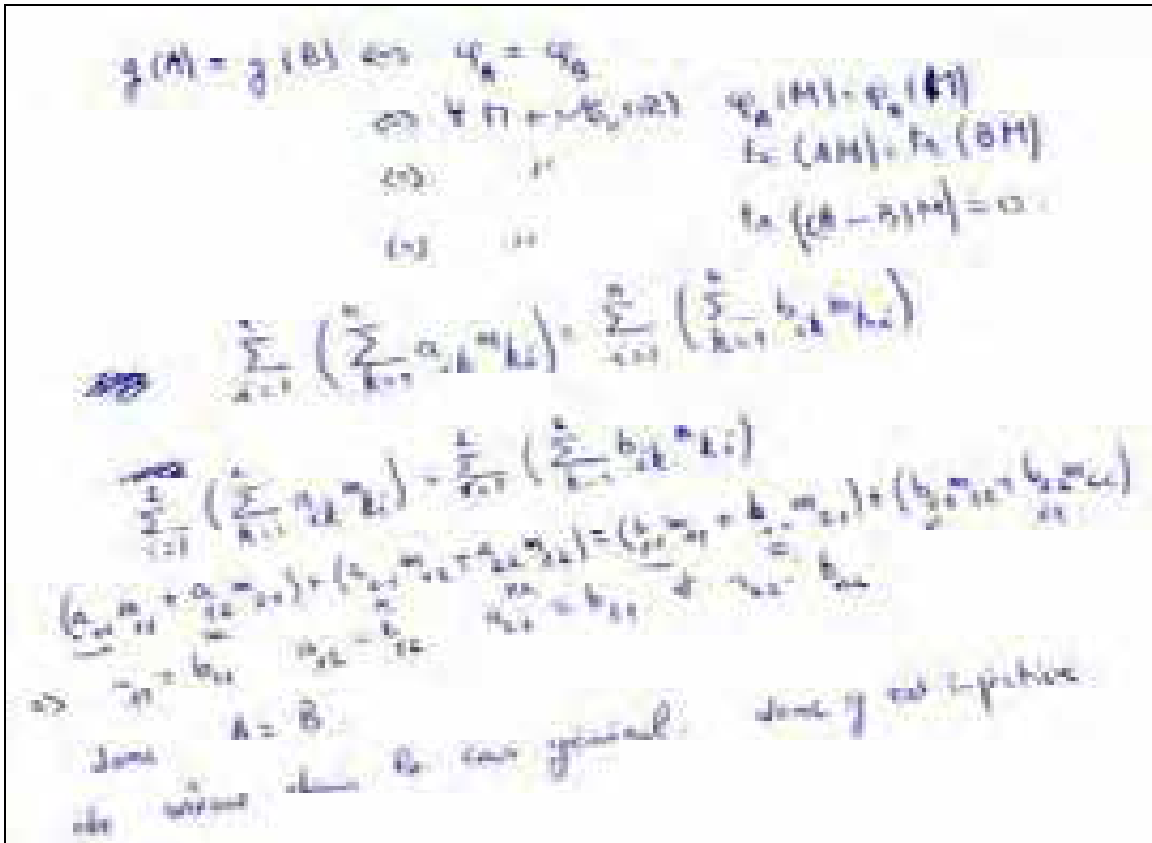 g(A) = g(B) <=> φ_A = φ_B
<=> ∀ M ∈ M_n(R) φ_A(M) = φ_B(M)
<=> " tr(AM) = tr(BM)
<=> " tr((A - B)M) = 0.
∑_{i=1}^{n} (∑_{k=1}^{n} a_{ik} m_{ki}) = ∑_{i=1}^{n} (∑_{k=1}^{n} b_{ik} m_{ki})
∑_{i=1}^{2} (∑_{k=1}^{2} a_{ik} m_{ki}) = ∑_{i=1}^{2} (∑_{k=1}^{2} b_{ik} m_{ki})
(a_{11} m_{11} + a_{12} m_{21}) + (a_{21} m_{12} + a_{22} m_{22}) = (b_{11} m_{11} + b_{12} m_{21}) + (b_{21} m_{12} + b_{22} m_{22})
=> a_{11} = b_{11} a_{12} = b_{12} a_{21} = b_{21} et a_{22} = b_{22}
donc A = B.
de même dans le cas général. donc g est injective